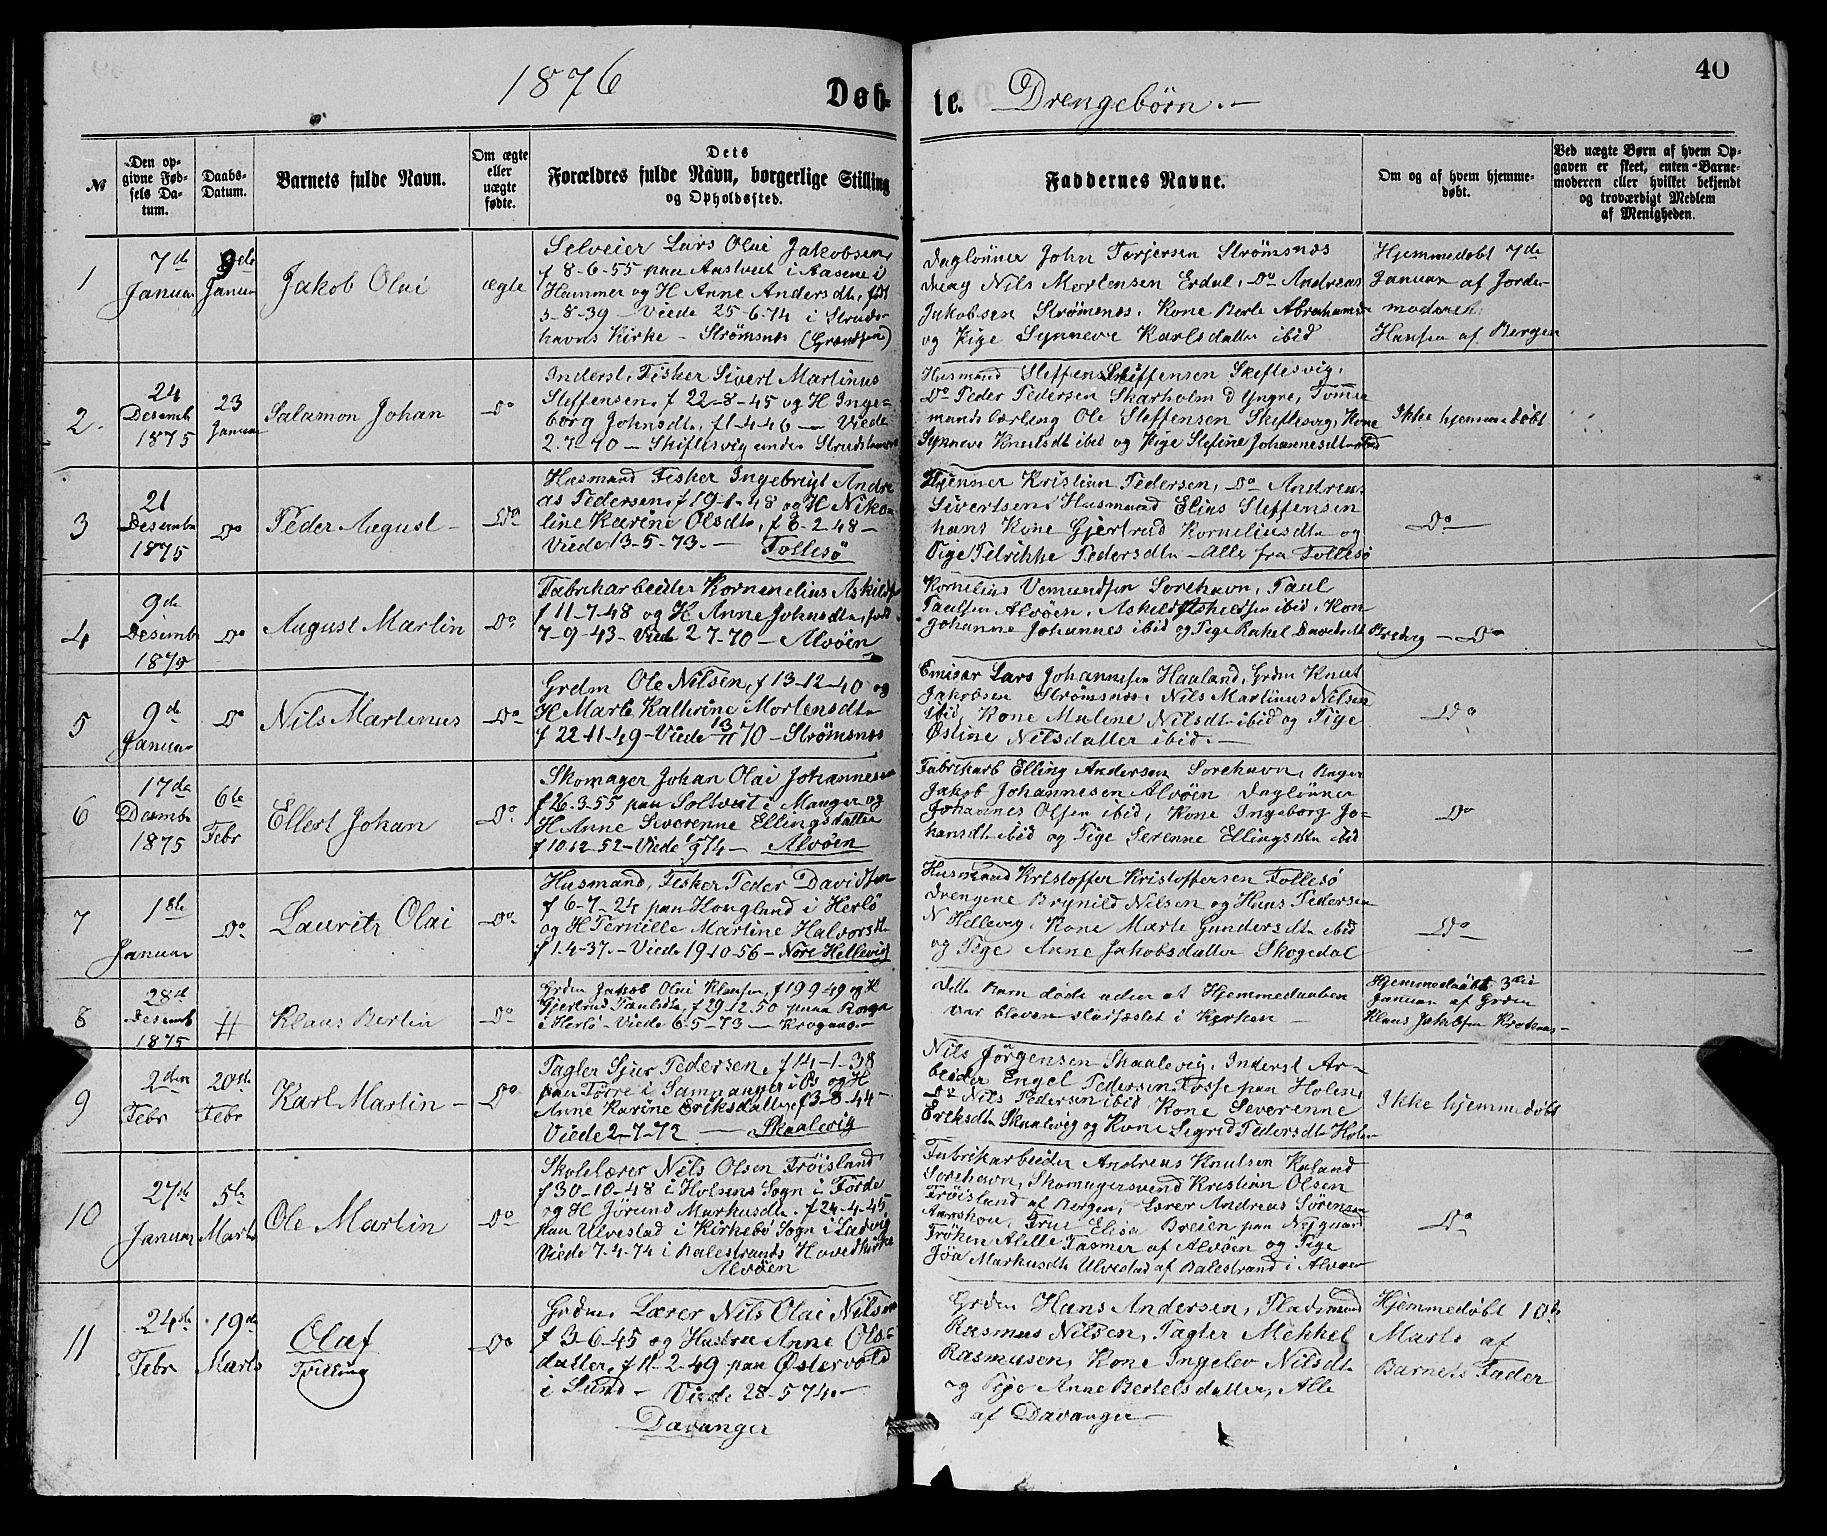 1876
Døb-
te. Drengebørn.
40
№
Den op-
givne Fød-
sels Da-
tum.
Daabs-
Datum.
Barnets fulde Navn.
Om ægte
eller
uægte
fødte.
Dets
Forældres fulde Navn, borgerlige Stilling
og Opholdssted.
Faddernes Navne.
Om og af hvem hjemme-
døbt.
Ved uægte Børn af hvem Op-
gaven er skeet, enten Barne-
moderen eller hvilket bekjendt
og troværdigt Medlem
af Menigheden.
1
7de
Januar
9de
Januar
Jakob Olai
ægte
Selveier Lars Olai Jakobsen,
f 8-6-55 paa Aastveit i Aasene i
Hammer og H Anne Andersdt, født
5-8-39 - Viede 25-6-74 i Struds-
havns Kirke - Strømsnes
Daglønner John Torjersen Strømsnes
Nils Mortensen Erdal, Do Andreas
Jakobsen Strømsnes, Kone Berte Abrahamsdt
og Pige Synneve Karlsdatter ibid
Hjemmedøbt 7de
Januar af Jorde-
moderen
Hansen af Bergen
2.
24
Desemb
1875
23
Januar
Salamon Johan
Do
Inderst, Fisker Sivert Martinus
Steffensen, f 22-8-45 og H Inge-
borg Johnsdt, f 1-4-46 - Viede
2-7-70 - Skiftesvig under Strudshavn
Husmand Steffen Steffensen Skiftesvig,
Do Peder Pedersen Skarholm d Yngre, Tømmer
mands Lærling Ole Steffensen Skiftesvig, Kone
Synneve Knutsdt ibid og Pige Stefine Johannesdt ibid
Ikke hjemmedøbt
3
21
Desembr
1875
Do
Peder August
Do
Husmand Fisker Ingebrigt Andre
as Pedersen, f 19-1-48 og H Niko-
line Karine Olsdt, f 8-2-48 -
Viede 13-5-73. - Follesø
Tjenner Kristian Pedersen, Do Andreas
Sivertsen, Husmand Elias Steffensen
hans Kone Gjertrud Korneliusdt og
Pige Pelrikke Pedersdt - Alle fra Follesø
Do
4
9de
Desembr
1875
Do
August Martin
Do
Fabrikarbeider Kornenelius Askilds
f 11-7-48 og H Anne Johnsdt, født
7-9-43 - Viede 2 7-70 - Alvøen
Kornelius Vemundsen Sorehavn, Paul
Paulsen Alvøen, Askild Askildsen ibid, Kon
Johanne Johannes ibid og Pige Rakel Davidsdt
Do
5
9de
Januar
Do
Nils Martinus
Do
Grdm Ole Nilsen, f 13-12-40 og
H Marte Kathrine Mortensdt
f 22-11-49 - Viede 13/11 70 - Strømsnes
Emisær Lars Johannesen Haaland, Grdm Knut
Jakobsen Strømsnes, Nils Martinus Nilsen
ibid, Kone Maline Nilsdt ibid og Pige
Østine Nilsdatter ibid.
Do
6
17de
Decembr
1875
6te
Febr
Ellert Johan
Do
Skomager Johan Olai Johannesen
f 26-3-55 paa Soltveit i Manger og
H Anne Severenne Ellingsdatter
f 10 12-52 - Viede 1/9 74 - Alvøen
Fabrikarb Elling Andersen Sorehavn, Bager
Jakob Johannesen Alvøen Daglønner
Johannes Olsen ibid, Kone Ingeborg Jo-
hansdt ibid og Pige Serenne Ellingsdt ibid
Do
7
1ste
Januar
Do
Lauritz Olai
Do
Husmand, Fisker Peder Davidsen
f 6-7-24 paa Hougland i Herlø
og H Pernille Martine Halvorsdt
f 1-4-37. - Viede 19-10-56 - Nore Hellevig
Husmand Kristoffer Kristoffersen Follesø
drengene Brynild Nilsen og Hans Pedersen
N Hellevig, Kone Marte Gundersdt ibid
og Pige Anne Jakobsdatter Skogedal
Do
8
28de
Desemb
1875
#
Klaus Bertin
Do
Grdm Jakob Olai Klausen, f 19 9-49 og H
Gjertrud Paulsdt, f 29-12-50 paa
i Herlø - Viede 6-5-73 - Krogaas
Dette Barn døde uden at Hjemmedaaben
var bleven stadfæstet i Kirken
Hjemmedøbt 3die
Januar af Grdm
Klaus Jakobsen
9
2den
Febr
20de
Febr
Karl Martin
Do
Tagler Sjur Pedersen, f 14-1-38
paa Tørre i Samnanger i Os og H
Anne Karine Eriksdatter, f 3-8-44 -
Viede 2-7-72 - Skaalevig
Nils Jørgensen Skaalevig, Inderst Ar-
beider Engel Pedersen Tosse paa Holen,
Do Nils Pedersen ibid Kone Severenne
Eriksdt Skaalevig og Kone Sigrid Pedersdt Holen
Ikke hjemmedøbt
10
27de
Januar
5te
Marts
Ole Martin
Do
Skolelærer Nils Olsen Frøisland
f 30-10-48 i Holsens Sogn i Førde
og H Jørund Markusdt. f 24-4-45
paa Ulvestad i Kirkebø Sogn i Ladvig
Viede 7-4-74 i Balestrands Hovedkirke
Alvøen
Fabrikarbeider Andreas Knutsen Kaland
Sorehavn, Skomagersvend Kristian Olsen
Frøisland af Bergen, Lærer Andreas Sørensen
Aarskou, Frue Elisa Breien paa Nygaard
Frøken Alette Fasmer af Alvøen og Pige
Jøa Markusdt Ulvestad af Balestrand i Alvøen
Do
11
24de
Febr
19de
Marts
Olaf
Tvilling
Do
Grdm, Lærer Nils Olai Nilsen
f 3-6-45 og Hustru Anne Ols-
datter, f 11-2-49 paa Østervold
i Sund - Viede 28-5 74.-
Davanger
Grdm Hans Andersen, Pladsmand
Rasmus Nilsen, Tagter Mekkel
Rasmusen, Kone Ingelev Nilsdt
og Pige Anne Bertelsdatter, Alle
af Davanger
Hjemmedøbt 10de
Marts af
Barnets Fader